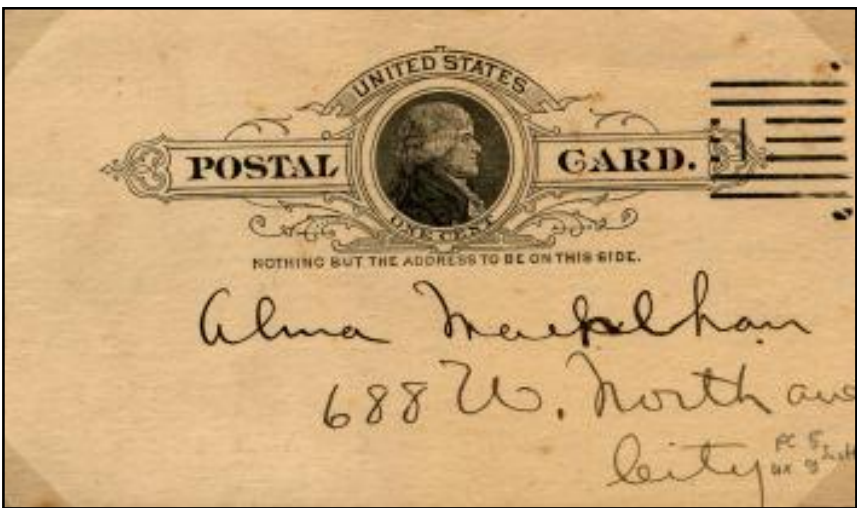 UNITED STATES
POSTAL CARD.
ONE CENT
NOTHING BUT THE ADDRESS TO BE ON THIS SIDE.
Alma
688 W. North ave
City